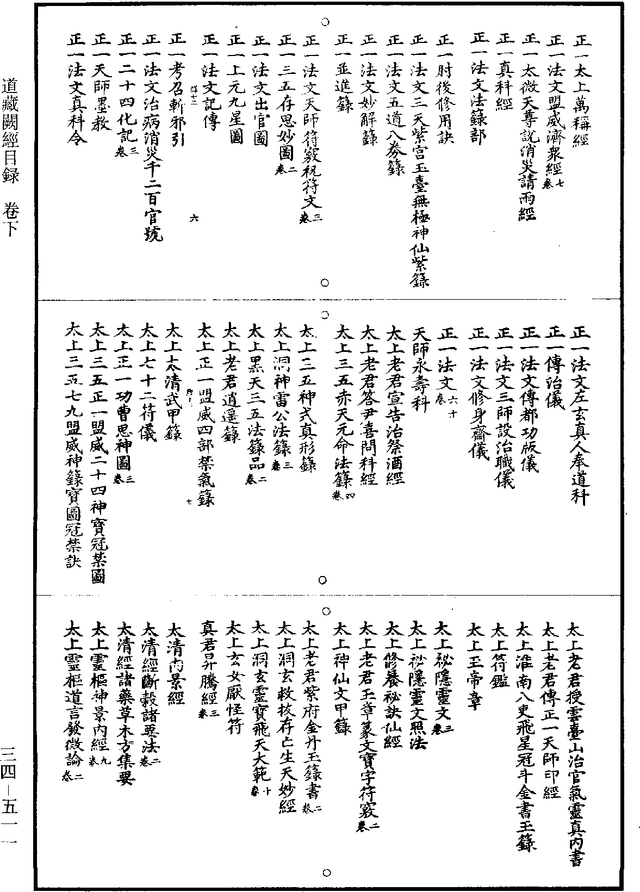 正一太上萬稱經
正一法文盟威濟衆經七卷
正一太微天尊說消災請雨經
正一真科經
正一法文法籙部
正一肘後修用訣
正一法文三天紫宮玉臺無極神仙紫籙
正一法文五道八券籙
正一法文妙解籙
正一並進籙
正一法文天師符竅祝符文三卷
正一三五存思妙圖二卷
正一法文出官圖
正一上元九星圖
正一法文記傳
正一考召斬邪引
六
正一法文治病消災千二百官號
正一二十四化記三卷
正一天師墨教
正一法文真科令
正一法文左玄真人奉道科
正一傳治儀
正一法文傳都功版儀
正一法文三師設治職儀
正一法文修身齋儀
正一法文六十卷
天師永壽科
太上老君宣告治祭酒經
太上老君答尹喜問科經
太上三五赤天元命法籙四卷
太上三五神式真形籙
太上洞神雷公法籙三卷
太上黑天三五法籙品二卷
太上老君逍遙籙
太上正一盟威四部禁氣籙
七
太上太清武甲籙
太上七十二符儀
太上正一功曹思神圖三卷
太上三五正一盟威二十四神寶冠禁圖
太上三五七九盟威神籙寶圖冠禁訣
太上老君授雲臺山治官氣靈真內書
太上老君傳正一天師印經
太上淮南八史飛星冠斗金書玉籙
太上符鑑
太上王帝章
太上祕隱靈文三卷
太上祕隱靈文照法
太上修養祕訣仙經
太上老君王章篆文寶字符竅二卷
太上神仙文甲籙
太上老君紫府金丹玉籙書二卷
太上洞玄救拔存亡生天妙經
太上洞玄靈寶飛天大範十卷
太上玄女厭怪符
真君昇騰經三卷
太清內景經
太清經斷穀諸要法二卷
太清經諸藥草木方集要
太上靈樞神景內經九卷
太上靈樞道言發微論二卷
道藏闕經目録 卷下
三四－五一一